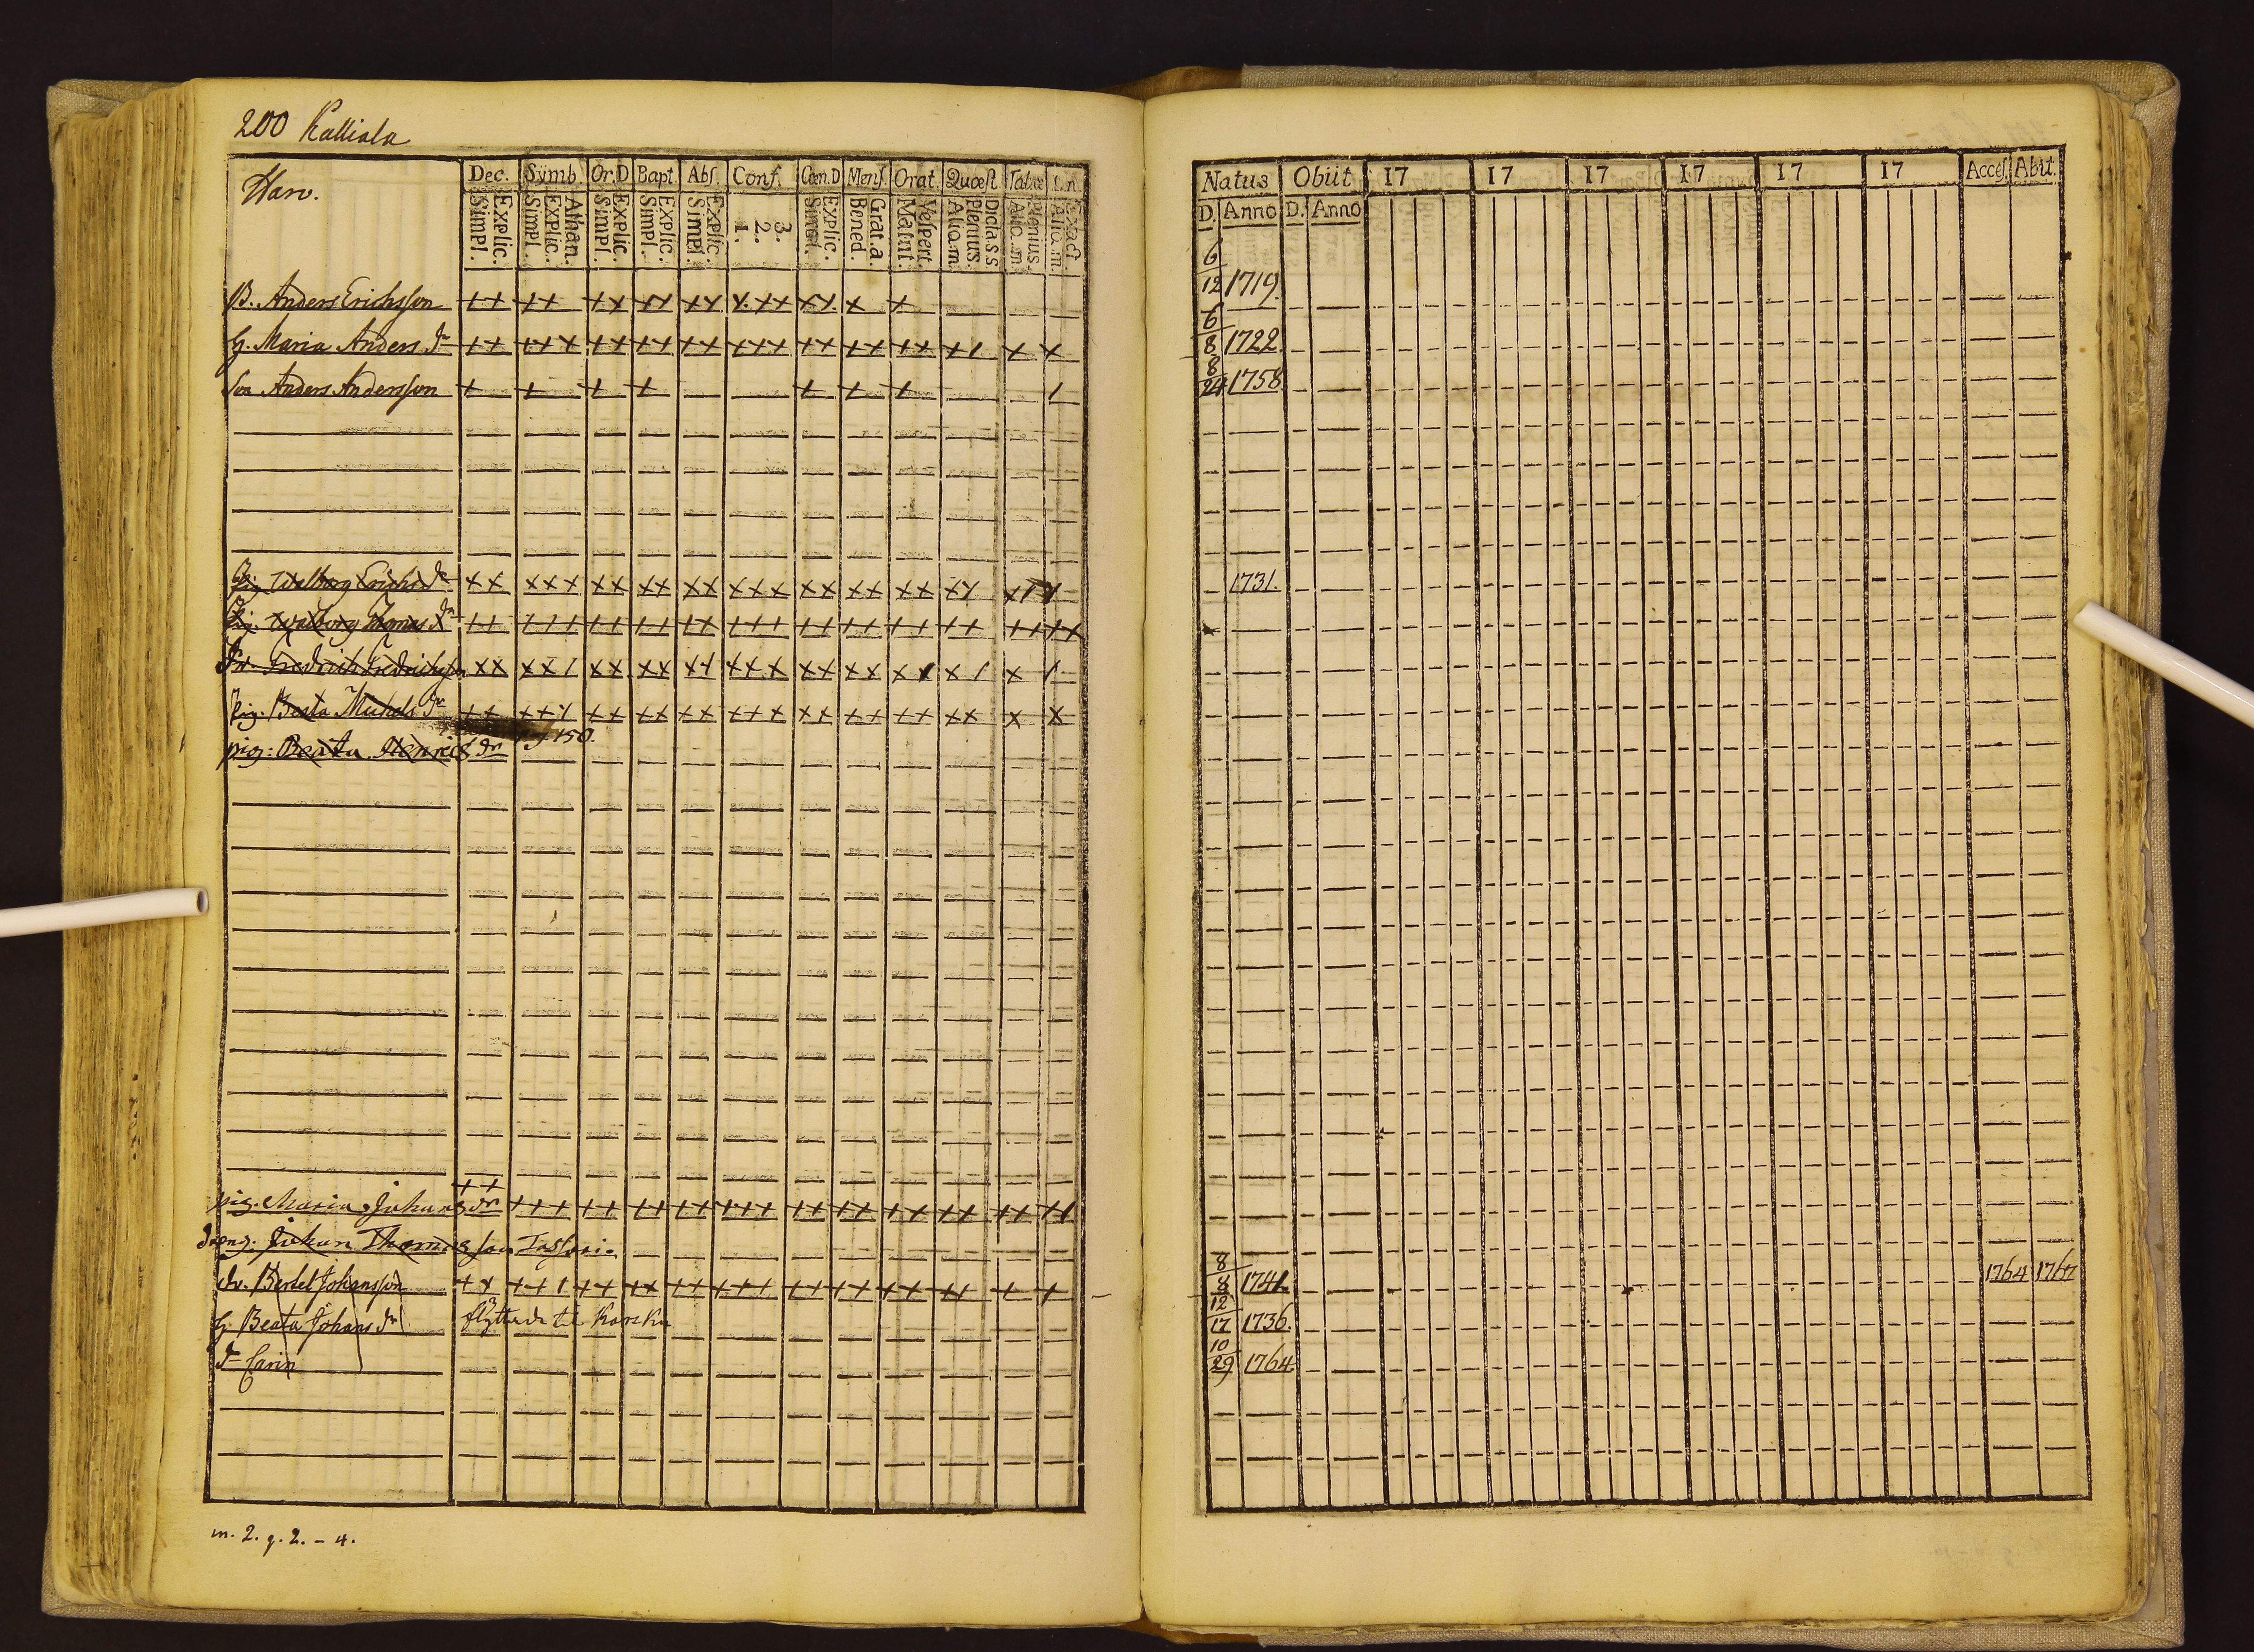 200 Kalliala
Harv.
Dec. Symb. Or.D Bapt. Abs. Conf. Cœn.D Mens. Orat. Quæst. Tabul
Explic. Simpl. Athan. Explic. Simpl. Explic. Simpl. Explic. Simpl. Explic. Simpl. 3. 2. 1. Explic. Simpl. Grat.a. Bened. Vespert. Matut. Dicta.s.s. Plenius. Aliq.m. Plenius. Aliq.m. Exact. Aliq.m.
B. Anders Erichsson ++ ++ ++ ++ ++ +++ ++ + +
H. Maria Anders dr ++ +++ ++ ++ ++ +++ ++ ++ ++ +/ + +
Son Anders Andersson + + + + + + + /
Pig. Walborg Erichs dr ×× ××× ×× ×× ×× ××× ×× ×× ××
Pig. Walborg Thomas dr
Dr. Fredrich Fredrichsson ×× ××/ ×× ×× ××
Pig. Beata Michels dr
pag. 150.
pig: Beata Henrics dr
pig. Maria Johans dr ++ +++ ++ ++ ++ +++ ++ ++ ++ ++ ++
Dreng. Johan Thomas son
Dr. Bertel Johansson
H. Beata Johans dr flyttade til Karsku
dr Carin
m. 2. q. 2. - 4.
Natus Obiit 17 17 17 17 17 17 Acces. Abit.
D. Anno D. Anno
6/12 1719.
6/8 1722.
8/24 1758
1731.
8/8 1741. 1764
12/17 1736.
10/29 1764